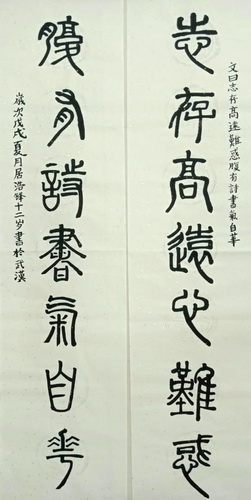 文曰志存高遠難惑腹有詩書氣自華
志存高遠心難惑
腹有詩書氣自華
歲次戊戌夏月居浩鋒十二岁書於武漢